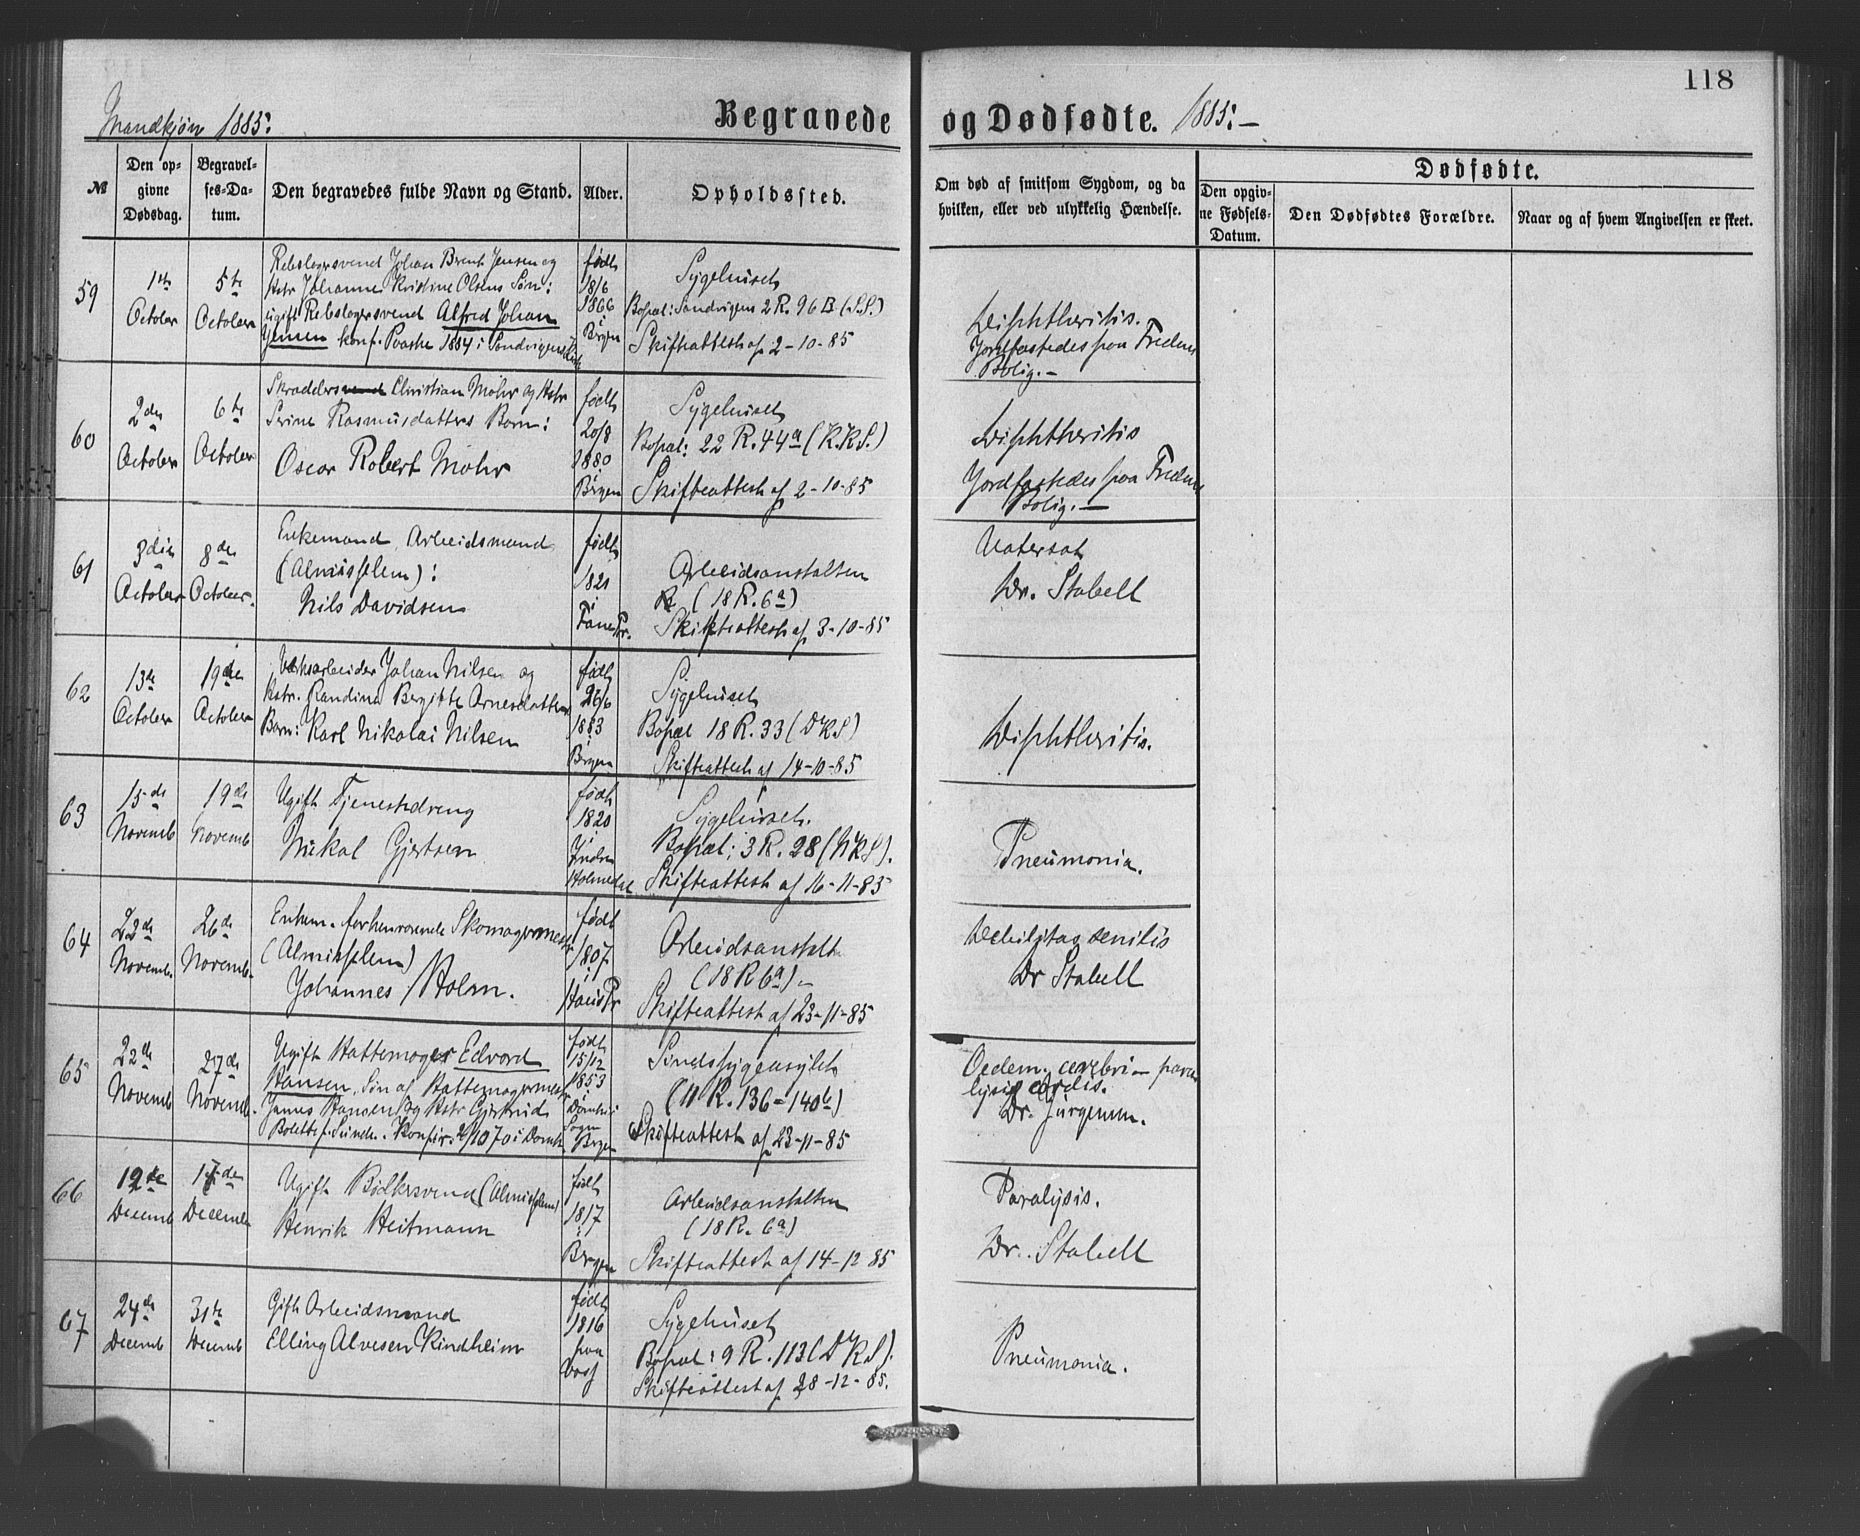 118
Mandkjøn 1885: Begravede og Dødfødte. 1885.—
№
Den opgivne Dødsdag.
Begravelses-Datum.
Den begravedes fulde Navn og Stand.
Alder.
Opholdssted.
Om død af smitsom Sygdom, og da hvilken, eller ved ulykkelig Hændelse.
Dødfødte.
Den opgivne Fødsels-Datum.
Den Dødfødtes Forældre.
Naar og af hvem Angivelsen er skeet.
59
1ste October
5te October
Rebslagersvend Johan Brent Jensen og
Hstr Johanne Kristine Olsens Søn:
ugift Rebslagersvend Alfred Johan
Jensen konf. Paaske 1884 i Sandvigens
født 18/6 1866 i Bergen
Sygehuset
Bopæl: Sandvigens 2 R. 96 B (S.S.)
Skifteattest af 2-10-85
Diphtheritis.
Jordfæstedes paa Fredens
Bolig.—
60
2den October
6te October
Skræddersvend Christian Mohr og Hstr
Serine Rasmusdatters Barn:
Oscar Robert Mohr
født 20/8 1880 i Bergen
Sygehuset
Bopæl: 22 R. 44a (K.K.S.)
Skifteattest af 2-10-85
Diphtheritis
Jordfæstedes paa Fredens
Bolig.—
61
3die October
8de October.
Enkemand, Arbeidsmand
(Almisselem):
Nils Davidsen
født 1821 i Fane Pr.
Arbeidsanstalten
(18 R. 6a)
Skifteattest af 3-10-85
Vatersot
Dr. Stabell
62
13de October
19de October
Værksarbeider Johan Nilsen og
Hstr. Randina Bergitte Arnesdatters
Barn: Karl Nikolai Nilsen
født 26/6 1883 i Bergen
Sygehuset
Bopæl 18 R. 33 (DKS)
Skifteattest af 14-10-85
Diphtheritis.
63
15de Novemb
19de Novemb
Ugift Tjenestedreng
Mikal Gjertsen
født 1820 i Indre Holmedal
Sygehuset.
Bopæl: 3 R. 28 (NKS).
Skifteattest af 16-11-85
Pneumonia.
64
22de Novemb.
26de Novemb.
Enkem. forhenværende Skomagermester
(Almisselem)
Johannes Holm.
født 1807 i Hans Pr
Arbeidsanstalt
(18 R 6a)
Skifteattest af 23-11-85
Debilitas senilis
Dr Stabell
65
22de Novemb
27de Novemb.
Ugift Hattemager Edvard
Hansen, Søn af Hattemagermester
James Hansen og Hstr Gjertrud
Bolette f. Sunde. Konfir. 2/10 70 i Domk.
født 15/12 1853 i Domk: Sogn Bergen
Sindssygeasylet
(11 R. 136-140b)
Skifteattest af 23-11-85
Oedem. cerebri – para
lysis cordis.
Dr. Jürgensen.
66
12de Decemb
17de Decemb
Ugift Bødkersvend (Almisselem)
Henrik Heitmann
født 1817 i Bergen
Arbeidsanstalten
(18 R. 6a)
Skifteattest af 14-12-85
Paralysis.
Dr. Stabell
67
24de Decemb
31te Decemb
Gift Arbeidsmand
Elling Alvesen Kindheim
født 1816 paa Voss
Sygehuset
Bopæl: 9 R. 113 (DKS).
Skifteattest af 28-12-85.
Pneumonia.